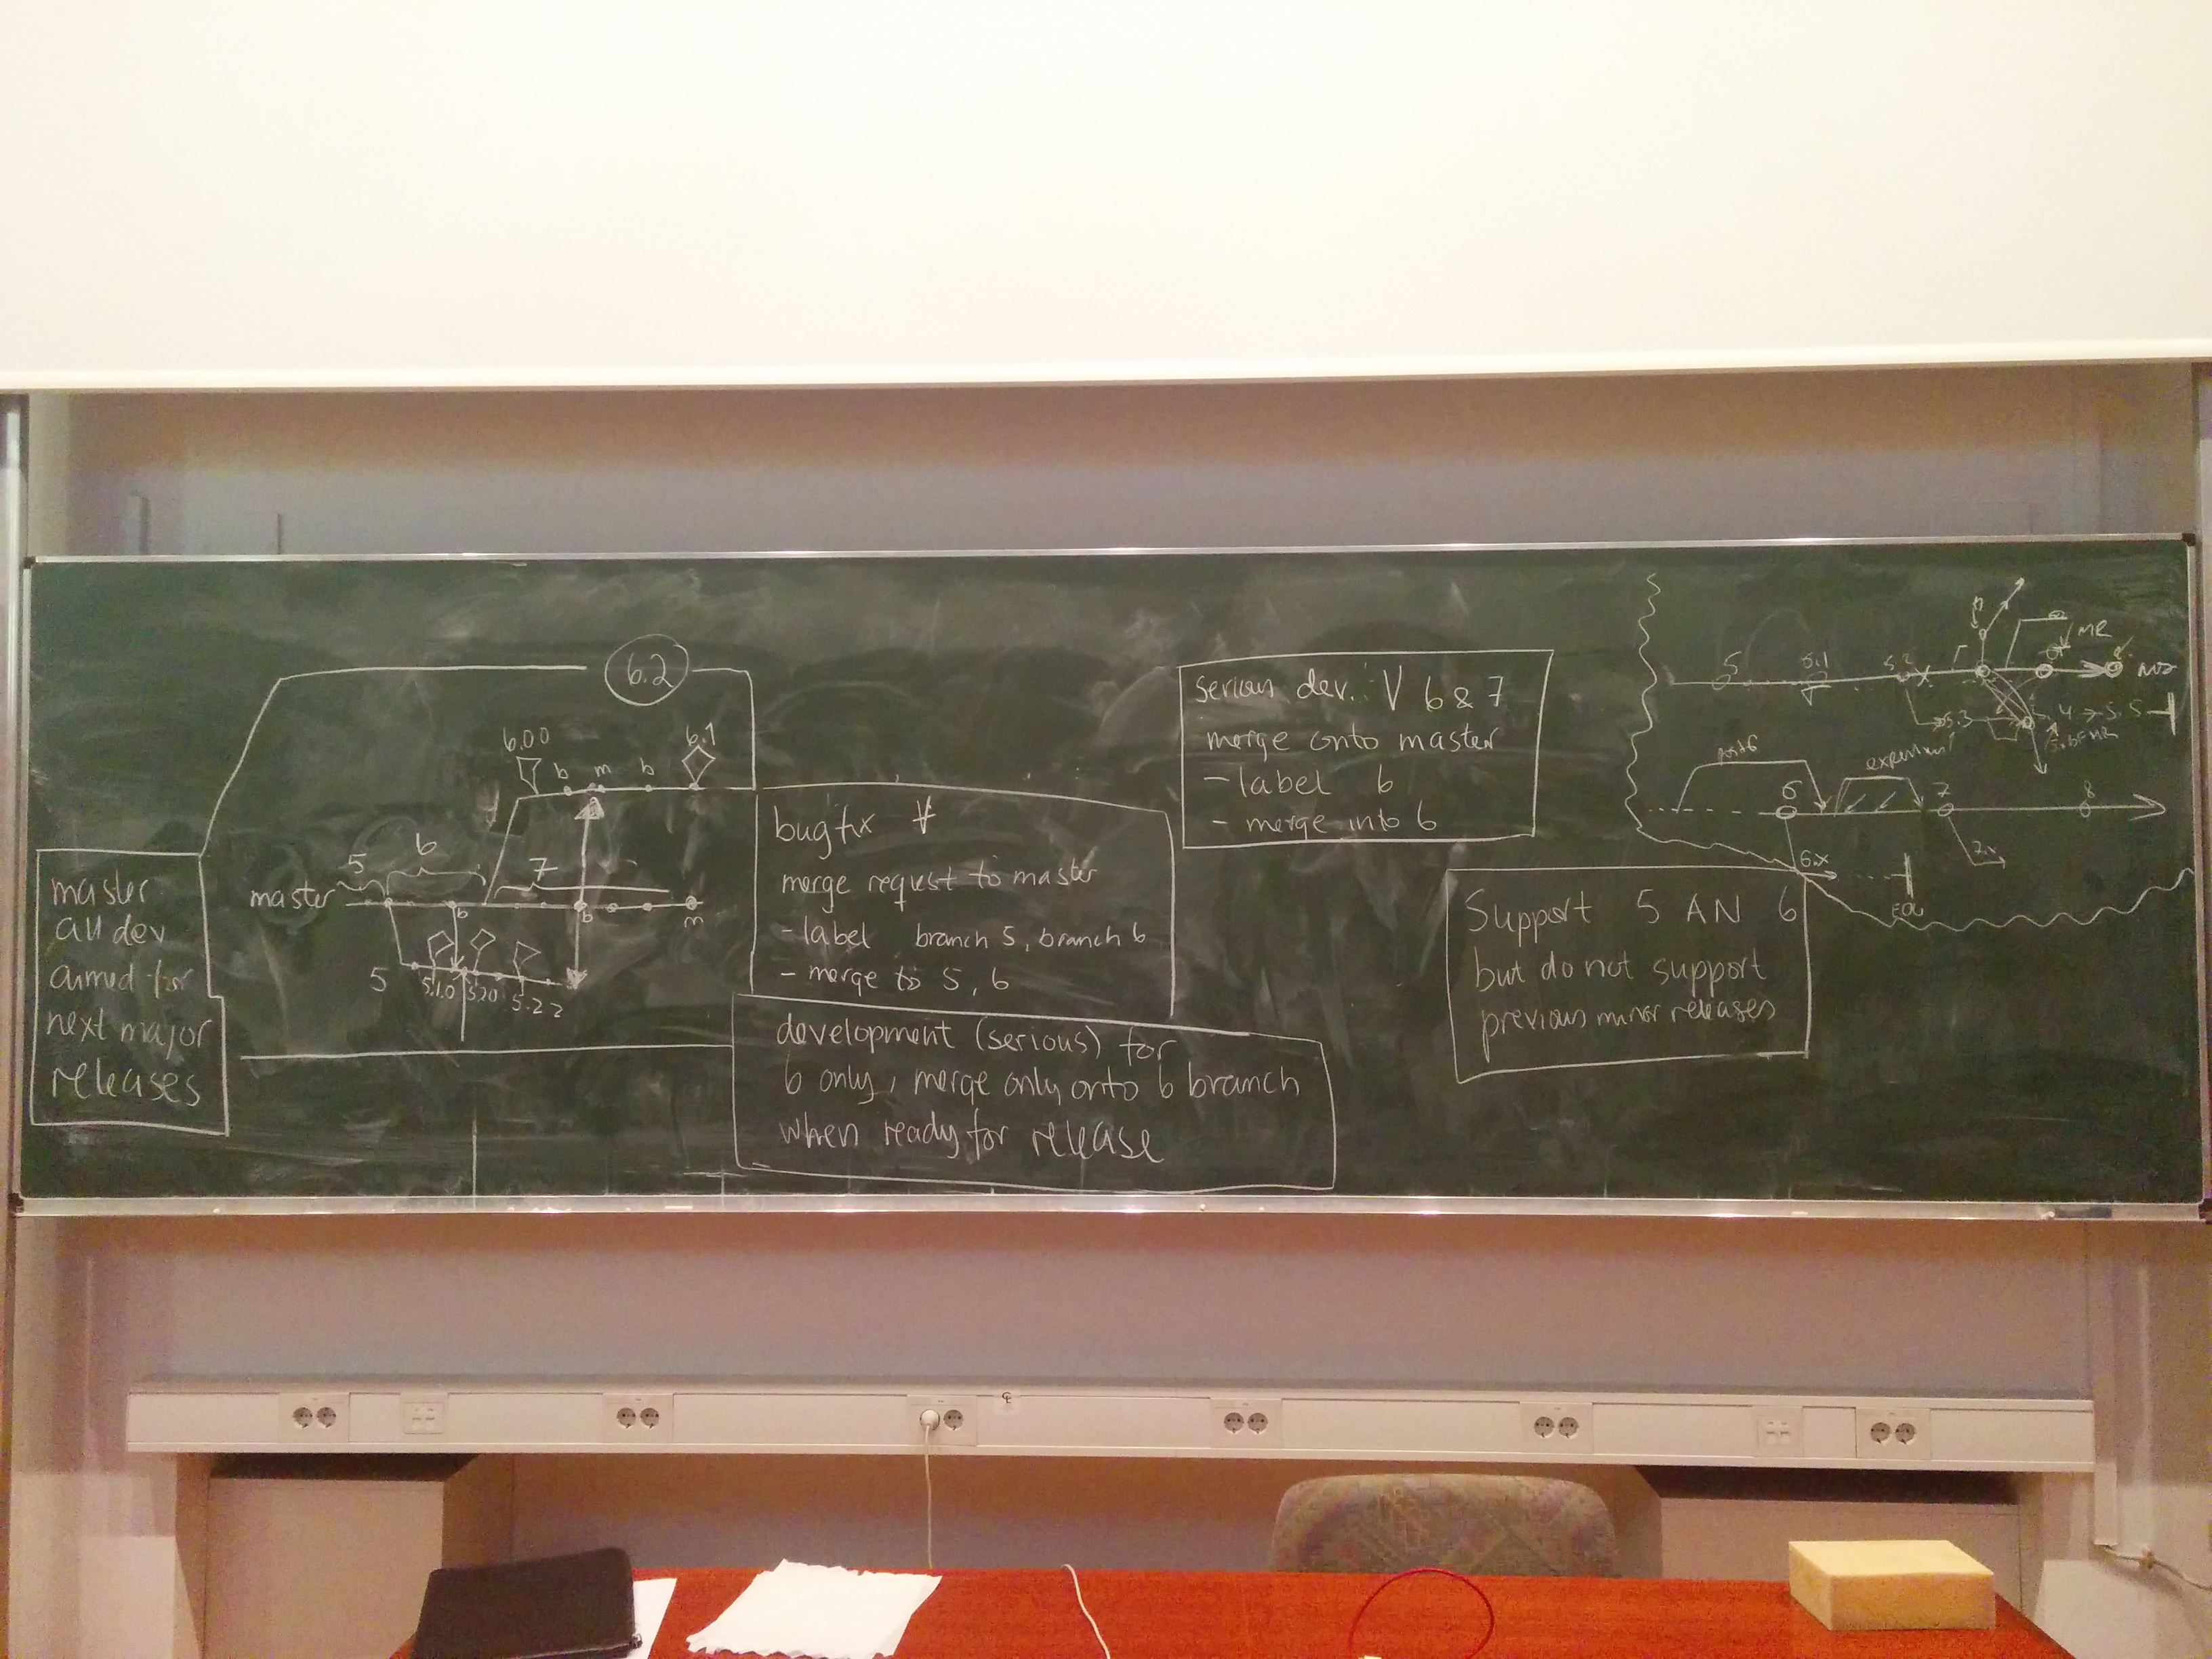 6.2
6.00
b m b
6.1
5
6
7
master
b
b
m
5
5.1.0
5.2.0
5.2.2
master
all dev
aimed for
next major
releases
bugfix ∀
merge request to master
- label branch 5, branch 6
- merge to 5, 6
development (serious) for
6 only, merge only onto 6 branch
when ready for release
serious dev. ∀ 6 & 7
merge onto master
- label 6
- merge into 6
Support 5 AN 6
but do not support
previous minor releases
5
5.1
5.2
MR
5.3
4 → 5.5
6
7
8
6.x
7.x
EOL